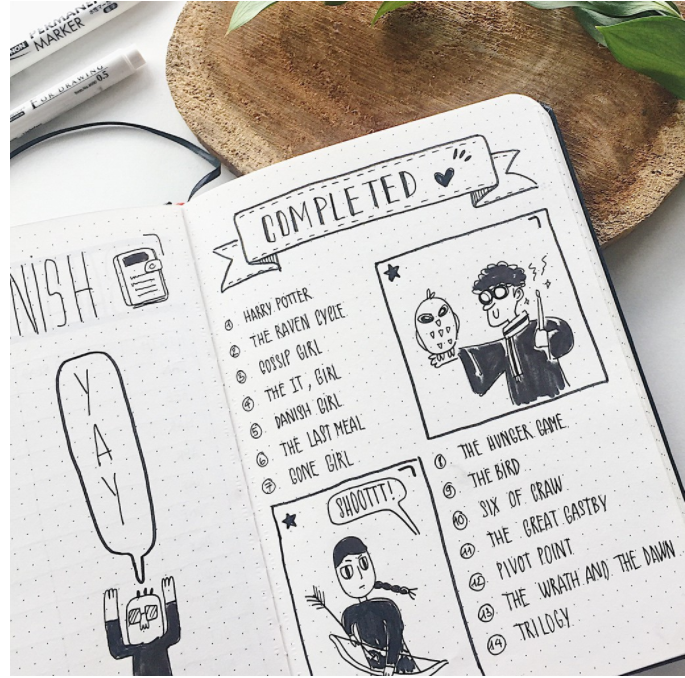 PERMANENT
MARKER
FOR DRAWING
0.5
NISH
YAY
COMPLETED
1 HARRY POTTER
2 THE RAVEN CYCLE
3 GOSSIP GIRL
4 THE IT, GIRL
5 DANISH GIRL
6 THE LAST MEAL
7 GONE GIRL
SHOOTTT!
8 THE HUNGER GAME
9 THE BIRD
10 SIX OF CRAW
11 THE GREAT GASTBY
12 PIVOT POINT
13 THE WRATH AND THE DAWN
14 TRILOGY